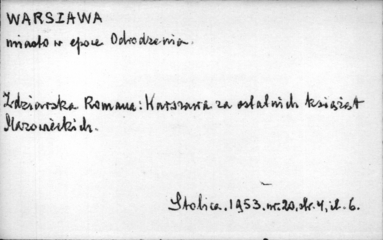 WARSZAWA
miasto w epoce Odrodzenia.
Zdziarska Romana: Warszawa za ostatnich książąt
Mazowieckich.
Stolica. 1953. nr. 20, str. 4, il. 6.